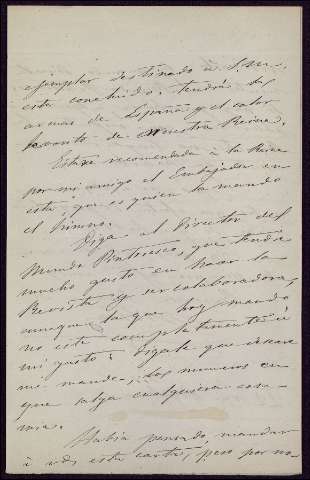 ejemplar destinado a S.M.,
este concluido. tendrá las
armas de España y el color
de nuestra Reina.
Estaré recomendada à la Reina
por mi amigo el Embajador en
esta que es quien la manda
el himno.
Diga al Director del
Mundo Pintoresco, que tendré
mucho gusto en honrar la
Revista y ser colaboradora,
aunque la que hoy mando
no esta completamente à
mi gusto: digale que desearé
me mande, los numeros en
que salga cualquiera cosa
mia.
Habia pensado, mandar
à vds esta carta, pero por no